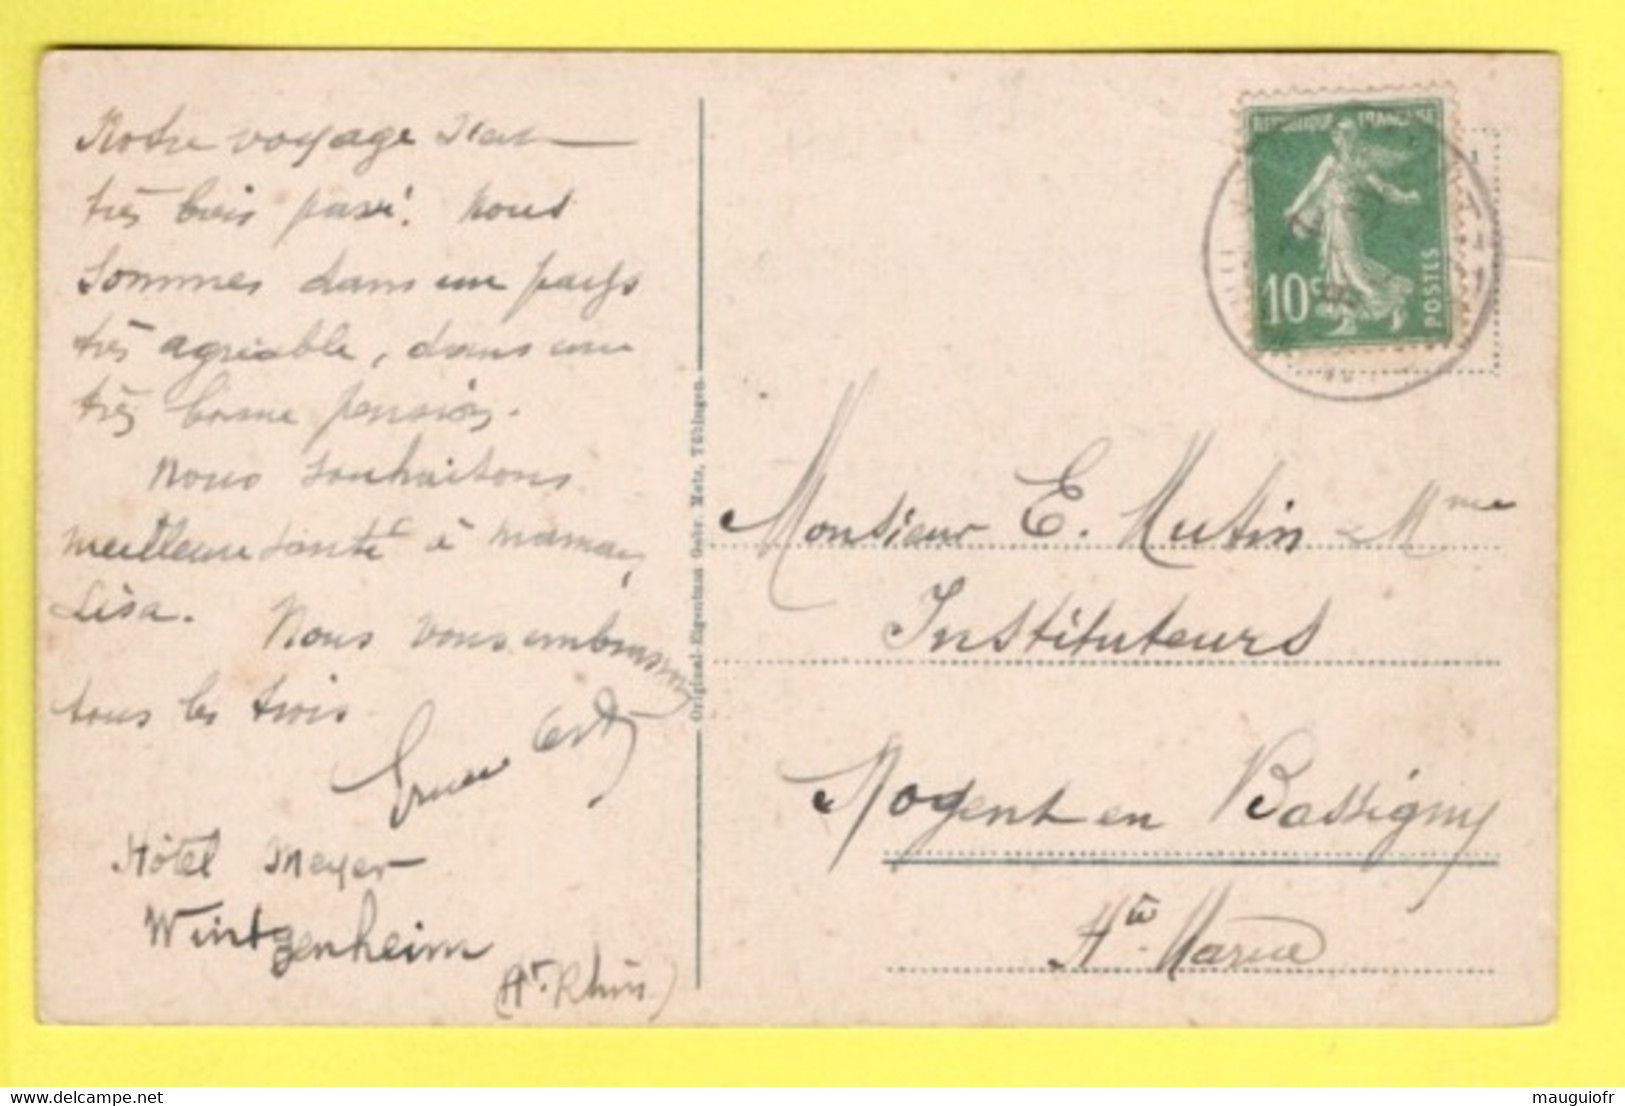 Notre voyage s'est
très bien passé. Nous
sommes dans un pays
très agréable, dans une
très bonne pension.
Nous souhaitons
meilleure santé à maman
Lisa. Nous vous embrassons
tous les trois
Hôtel Meyer
Wintzenheim
(Ht. Rhin)
Original-Eigentum Gebr. Metz, Tübingen.
REPUBLIQUE FRANÇAISE
10c
POSTES
Monsieur E. Mutin & Mme
Instituteurs
Nogent en Bassigny
Hte Marne
mauguiofr